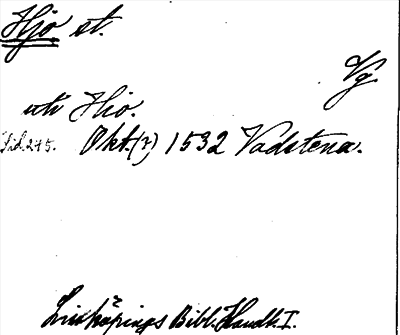 Hjo st.
Vg
uti Hio.
Sid. 245. Okt.(?) 1532 Vadstena.
Linköpings Bibl. Handl. I.